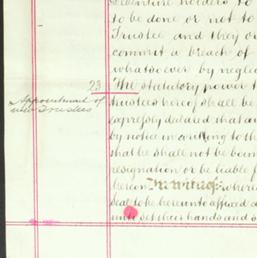 Debenture holders to
to be done or not to
Trustee and they or
commit a breach of
whatsoever by negle
23 The statutory power t
Appointment of
new Trustees
trustees hereof shall be
expressly declared that an
by notice in writing to th
shall be shall not be boun
resignation or be liable f
hereon In Witness where
Seal to be hereunto affixed a
unto set their hands and s